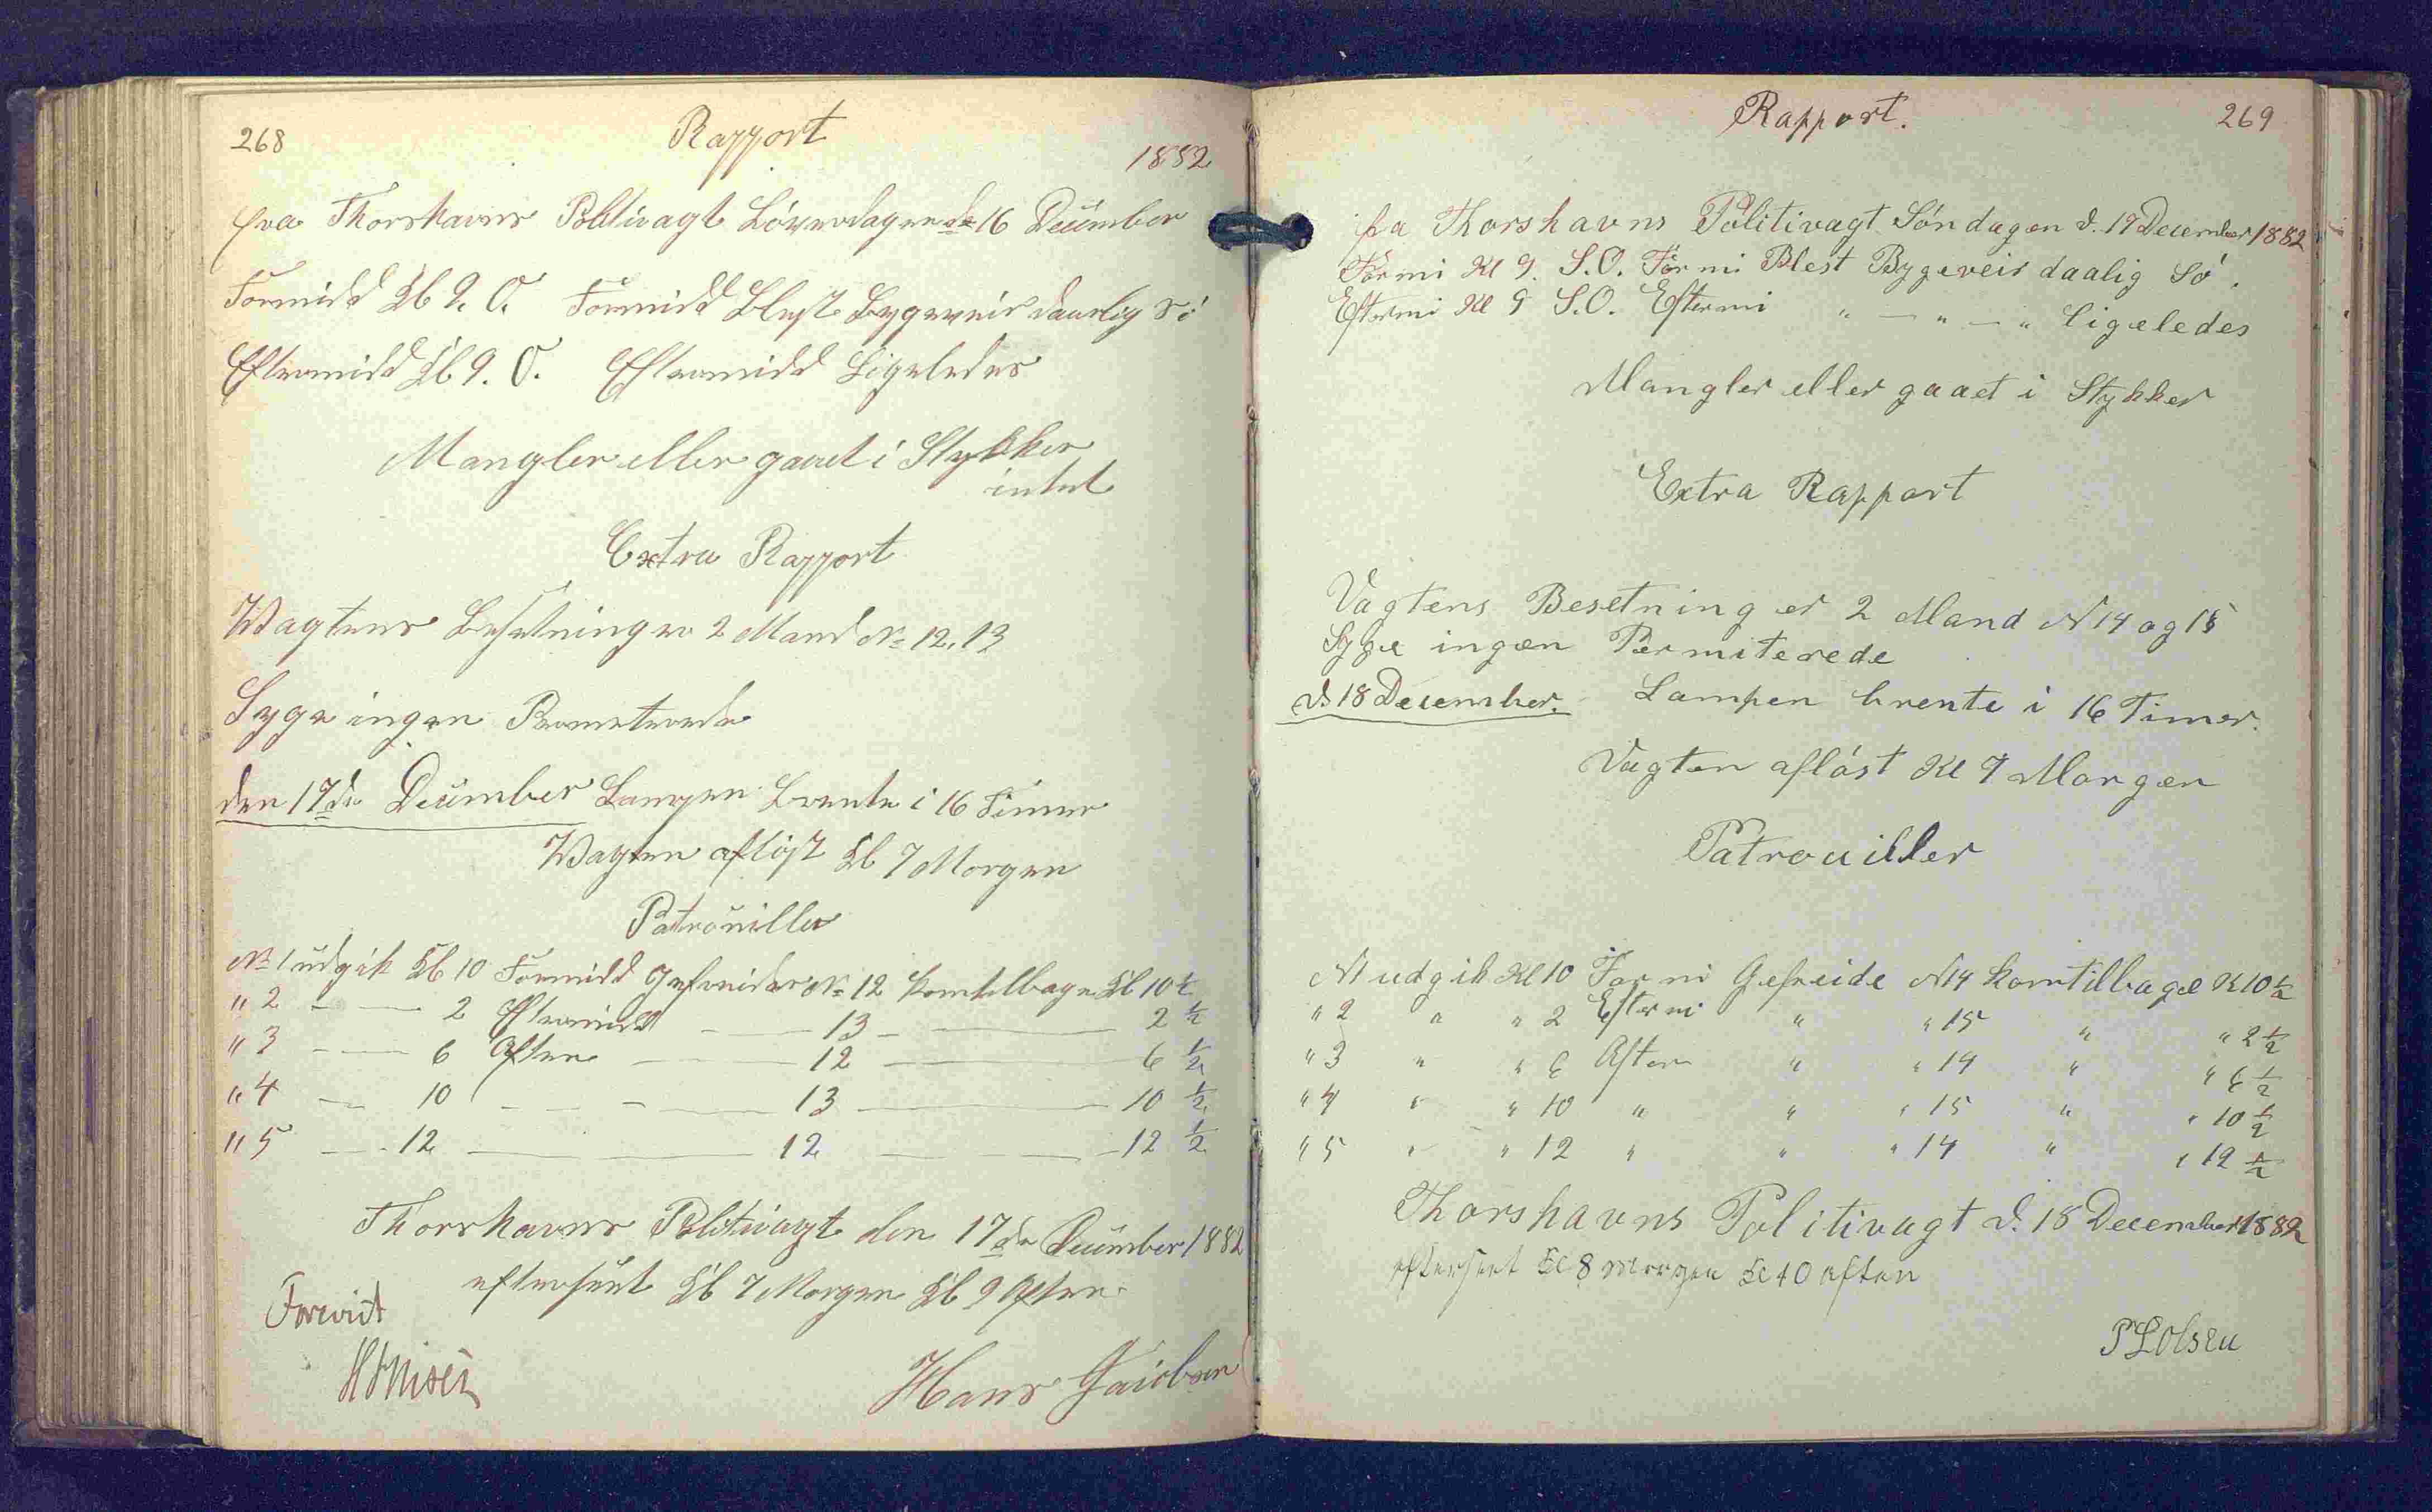 268
Rapport
1882
fra Thorshavns Politivagt Löverdagen d 16 December
Formidd Kl 9. O. Formidd Blest Bygeveir daarlig Sö
Eftermidd Kl 9. O. Eftermidd Ligeledes
Mangler eller gaaet i Stykker
intet
Extra Rapport
Wagtens Besetning er 2 Mand No 12. 13
Syge ingen Permeterede
den 17de December Lampen brente i 16 Timer
Wagten aflöst Kl 7 Morgen
Patrouiller
No 1 udgik Kl 10 Formidd Gefreider No 12 kom tilbage Kl 10 ½
" 2 — — 2 Eftermidd — — 13 — — 2 ½
" 3 — — 6 Aften — — 12 — — 6 ½
" 4 — 10 — — — — 13 — — 10 ½
" 5 — — 12 — — 12 — — — 12 ½
Thorshavns Politivagt den 17de December 1882
efterseet Kl 7 Morgen Kl 9 Aften
Forevist
Hans Jacobsen
Rapport.
269
fra Thorshavns Politivagt Söndagen d. 17 December 1882
Formi Kl 9. S.O. Formi Blest Bygeveir daalig Sö.
Eftermi Kl 9 S.O. Eftermi " — " — " ligeledes
Mangler eller gaaet i Stykker
Extra Rapport
Vagtens Besetning er 2 Mand N 14 og 15
Syge ingen Permiterede
d 18 December. Lampen brente i 16 Timer.
Vagten aflöst Kl 7 Morgen
Patrouiller
N1 udgik Kl 10 Formi Gefreide N14 kom tilbage K 10 ½
" 2 " " 2 Eftermi " " 15 " " 2 ½
" 3 " " 6 Aften " " 14 " " 6 ½
" 4 " " 10 " " " 15 " " 10 ½
" 5 " " 12 " " " 14 " " 12 ½
Thorshavns Politivagt d. 18 December 1882
efterseet Kl 8 Morgen Kl 10 aften
P L Olsen